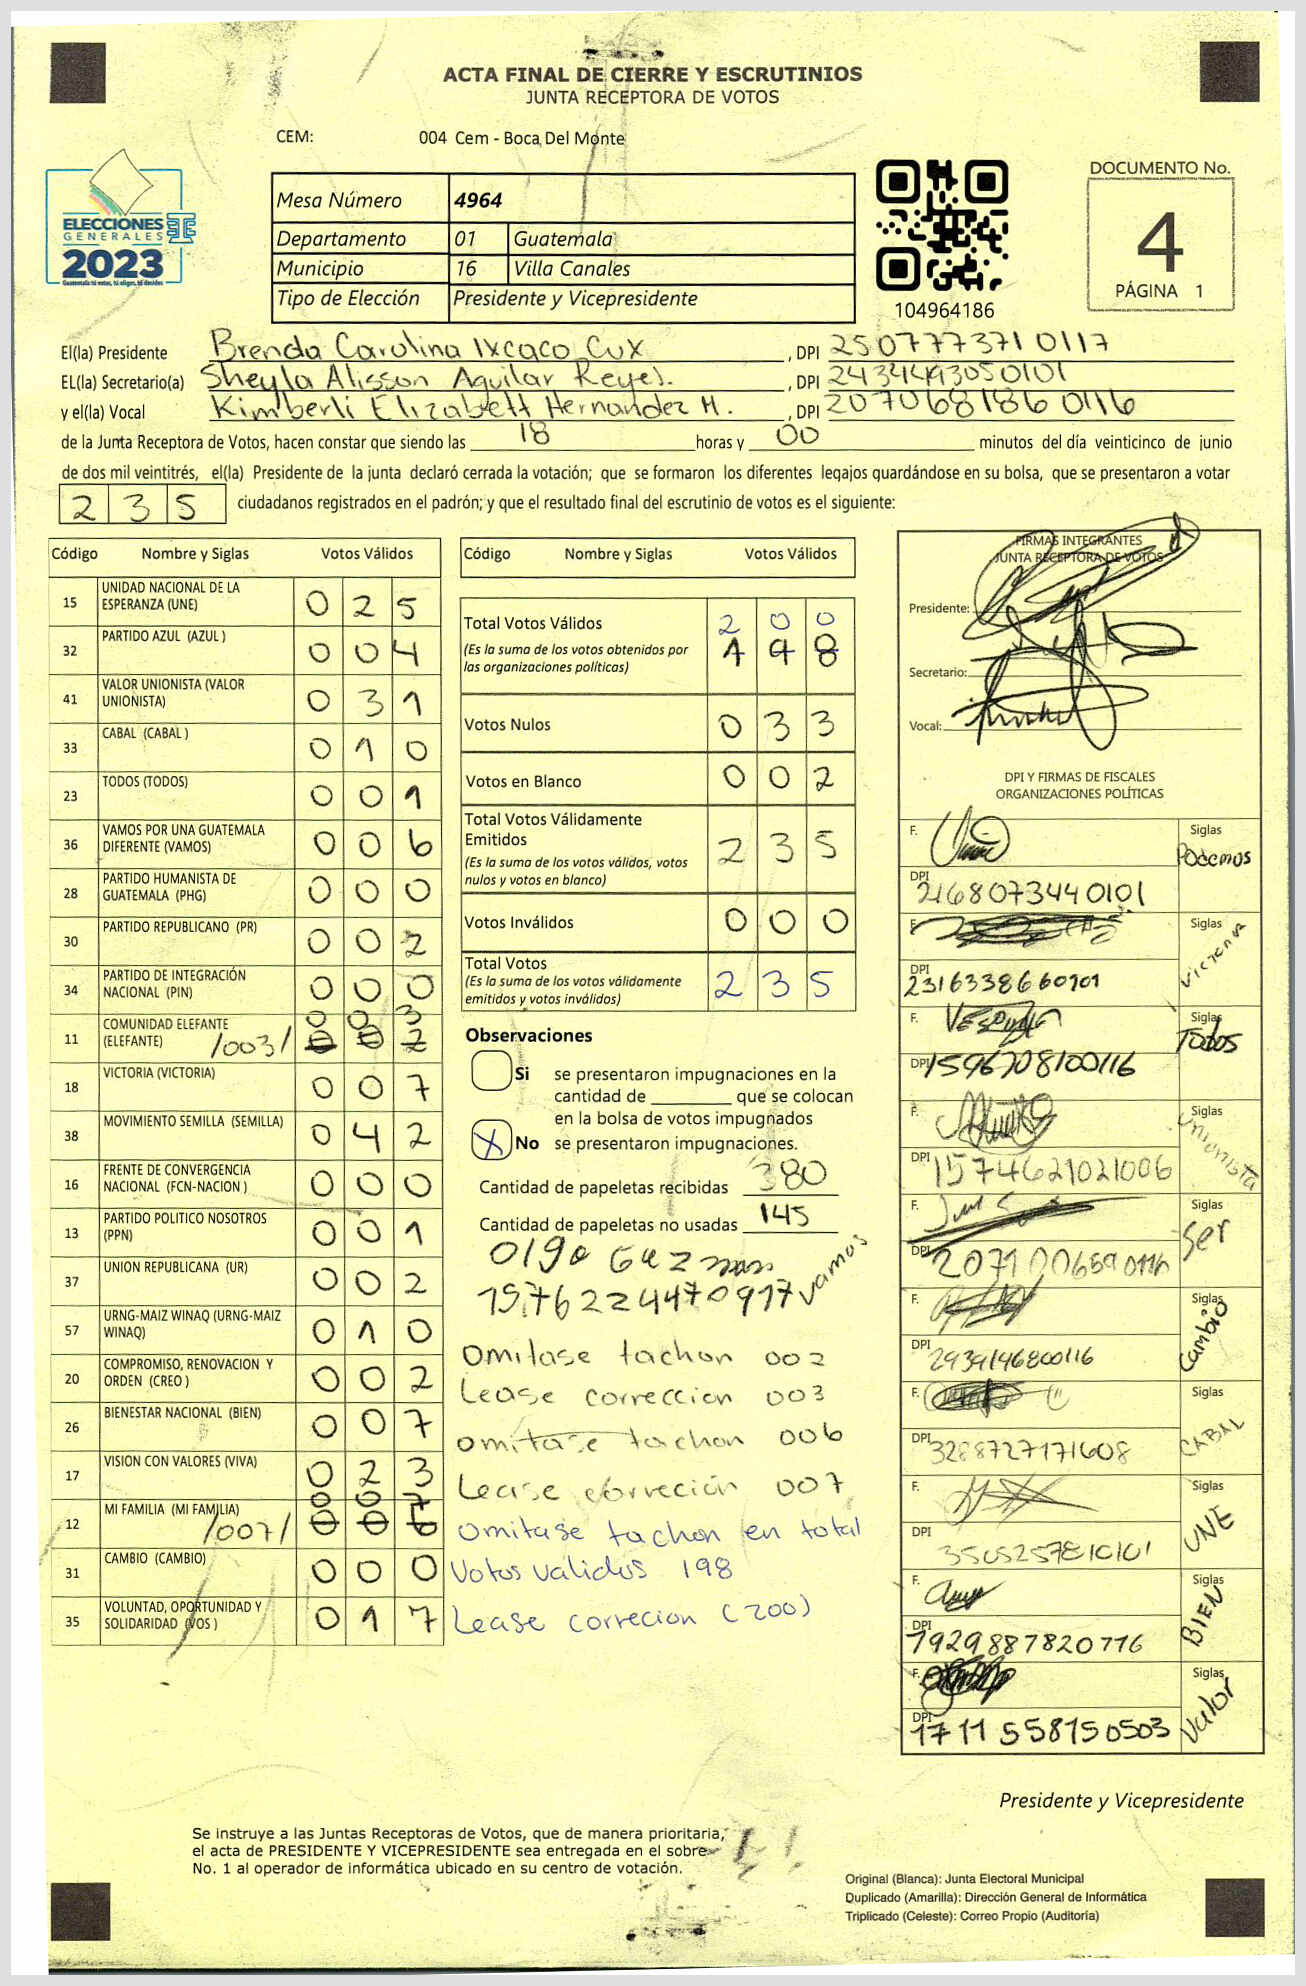 ACTA FINAL DE CIERRE Y ESCRUTINIOS
JUNTA RECEPTORA DE VOTOS
CEM: 004 Cem - Boca Del Monte
ELECCIONES
GENERALES
2023
Guatemala tú votas, tú eliges, tú decides
Mesa Número 4964
Departamento 01 Guatemala
Municipio 16 Villa Canales
Tipo de Elección Presidente y Vicepresidente
104964186
DOCUMENTO No.
4
PÁGINA 1
El(la) Presidente Brenda Carolina Ixcaco Cux , DPI 2507773710117
EL(la) Secretario(a) Sheyla Alisson Aguilar Reyes. , DPI 2434493050101
y el(la) Vocal Kimberli Elizabett Hernandez M. , DPI 2070681860116
de la Junta Receptora de Votos, hacen constar que siendo las 18 horas y 00 minutos del día veinticinco de junio
de dos mil veintitrés, el(la) Presidente de la junta declaró cerrada la votación; que se formaron los diferentes legajos guardándose en su bolsa, que se presentaron a votar
235 ciudadanos registrados en el padrón; y que el resultado final del escrutinio de votos es el siguiente:
Código Nombre y Siglas Votos Válidos
15 UNIDAD NACIONAL DE LA ESPERANZA (UNE) 0 2 5
32 PARTIDO AZUL (AZUL ) 0 0 4
41 VALOR UNIONISTA (VALOR UNIONISTA) 0 3 1
33 CABAL (CABAL ) 0 1 0
23 TODOS (TODOS) 0 0 1
36 VAMOS POR UNA GUATEMALA DIFERENTE (VAMOS) 0 0 6
28 PARTIDO HUMANISTA DE GUATEMALA (PHG) 0 0 0
30 PARTIDO REPUBLICANO (PR) 0 0 2
34 PARTIDO DE INTEGRACIÓN NACIONAL (PIN) 0 0 0
11 COMUNIDAD ELEFANTE (ELEFANTE) /003/ 0 0 3 0 0 2
18 VICTORIA (VICTORIA) 0 0 7
38 MOVIMIENTO SEMILLA (SEMILLA) 0 4 2
16 FRENTE DE CONVERGENCIA NACIONAL (FCN-NACION ) 0 0 0
13 PARTIDO POLITICO NOSOTROS (PPN) 0 0 1
37 UNION REPUBLICANA (UR) 0 0 2
57 URNG-MAIZ WINAQ (URNG-MAIZ WINAQ) 0 1 0
20 COMPROMISO, RENOVACION Y ORDEN (CREO ) 0 0 2
26 BIENESTAR NACIONAL (BIEN) 0 0 7
17 VISION CON VALORES (VIVA) 0 2 3
12 MI FAMILIA (MI FAMILIA) /007/ 0 0 7 0 0 6
31 CAMBIO (CAMBIO) 0 0 0
35 VOLUNTAD, OPORTUNIDAD Y SOLIDARIDAD (VOS ) 0 1 7
Código Nombre y Siglas Votos Válidos
Total Votos Válidos 2 0 0
(Es la suma de los votos obtenidos por las organizaciones políticas) 1 9 8
Votos Nulos 0 3 3
Votos en Blanco 0 0 2
Total Votos Válidamente Emitidos 2 3 5
(Es la suma de los votos válidos, votos nulos y votos en blanco)
Votos Inválidos 0 0 0
Total Votos 2 3 5
(Es la suma de los votos válidamente emitidos y votos inválidos)
Observaciones
Si se presentaron impugnaciones en la
cantidad de ________ que se colocan
en la bolsa de votos impugnados
X No se presentaron impugnaciones.
Cantidad de papeletas recibidas 380
Cantidad de papeletas no usadas 145
vamos
omitase tachon 002
Lease correccion 003
omitase tachon 006
Lease correción 007
omitase tachon en total
Votos validos 198
Lease correcion (200)
FIRMAS INTEGRANTES
JUNTA RECEPTORA DE VOTOS
Presidente:
Secretario:
Vocal:
DPI Y FIRMAS DE FISCALES
ORGANIZACIONES POLÍTICAS
F. Siglas Podemos
DPI 2168073440101
F. Siglas Victoria
DPI 2316338660101
F. Siglas Todos
DPI 1596708100116
F. Siglas Unionista
DPI 1574621021006
F. Siglas Ser
DPI 2071006590116
F. Siglas Cambio
DPI 2939146800116
F. Siglas CABAL
DPI 3288727171608
F. Siglas UNE
DPI 3505257810101
F. Siglas BIEN
DPI 1929887820716
F. Siglas Valor
DPI 1711558150503
Presidente y Vicepresidente
Se instruye a las Juntas Receptoras de Votos, que de manera prioritaria,
el acta de PRESIDENTE Y VICEPRESIDENTE sea entregada en el sobre
No. 1 al operador de informática ubicado en su centro de votación.
Original (Blanca): Junta Electoral Municipal
Duplicado (Amarilla): Dirección General de Informática
Triplicado (Celeste): Correo Propio (Auditoría)